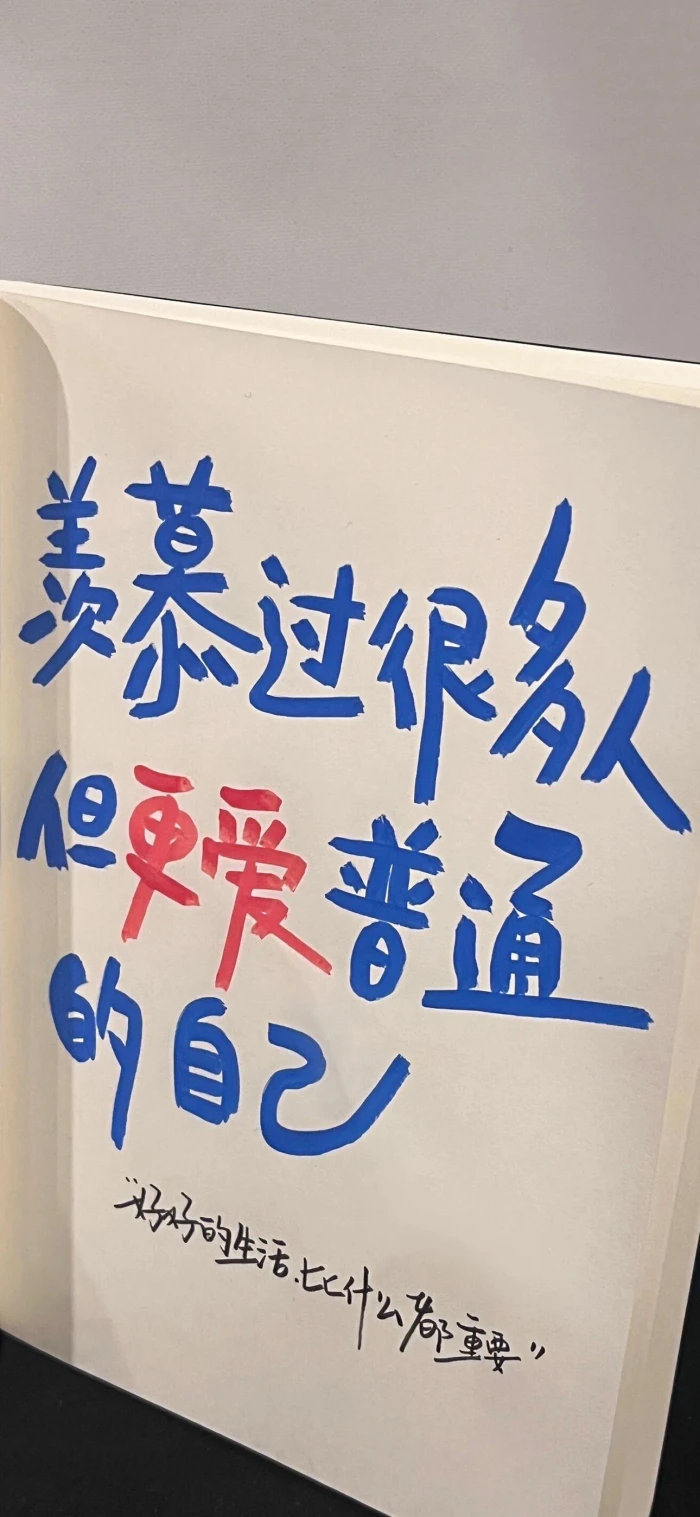 羡慕过很多人
但更爱普通
的自己
“好好的生活.比什么都重要”